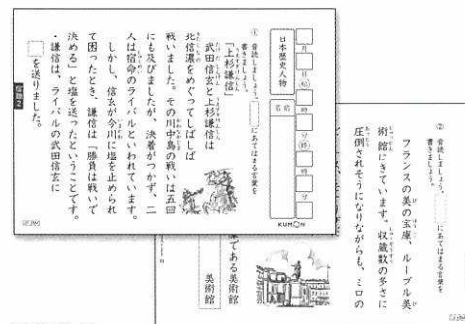 日本歴史人物
月
日
時
分
時
分
名前
KUMON
① 音読しましょう。
にあてはまる言葉を
書きましょう。
「上杉謙信」
武田信玄と上杉謙信は
北信濃をめぐってしばしば
戦いました。その川中島の戦いは五回
にも及びましたが、決着がつかず、二
人は宿命のライバルといわれています。
しかし、信玄が今川に塩を止められ
て困ったとき、謙信は「勝負は戦いで
決める」と塩を送ったということです。
・謙信は、ライバルの武田信玄に
を送りました。
② 音読しましょう。
にあてはまる言葉を
書きましょう。
フランスの美の宝庫、ルーブル美
術館にきています。収蔵数の多さに
圧倒されそうになりながらも、ミロの
である美術館
美術館